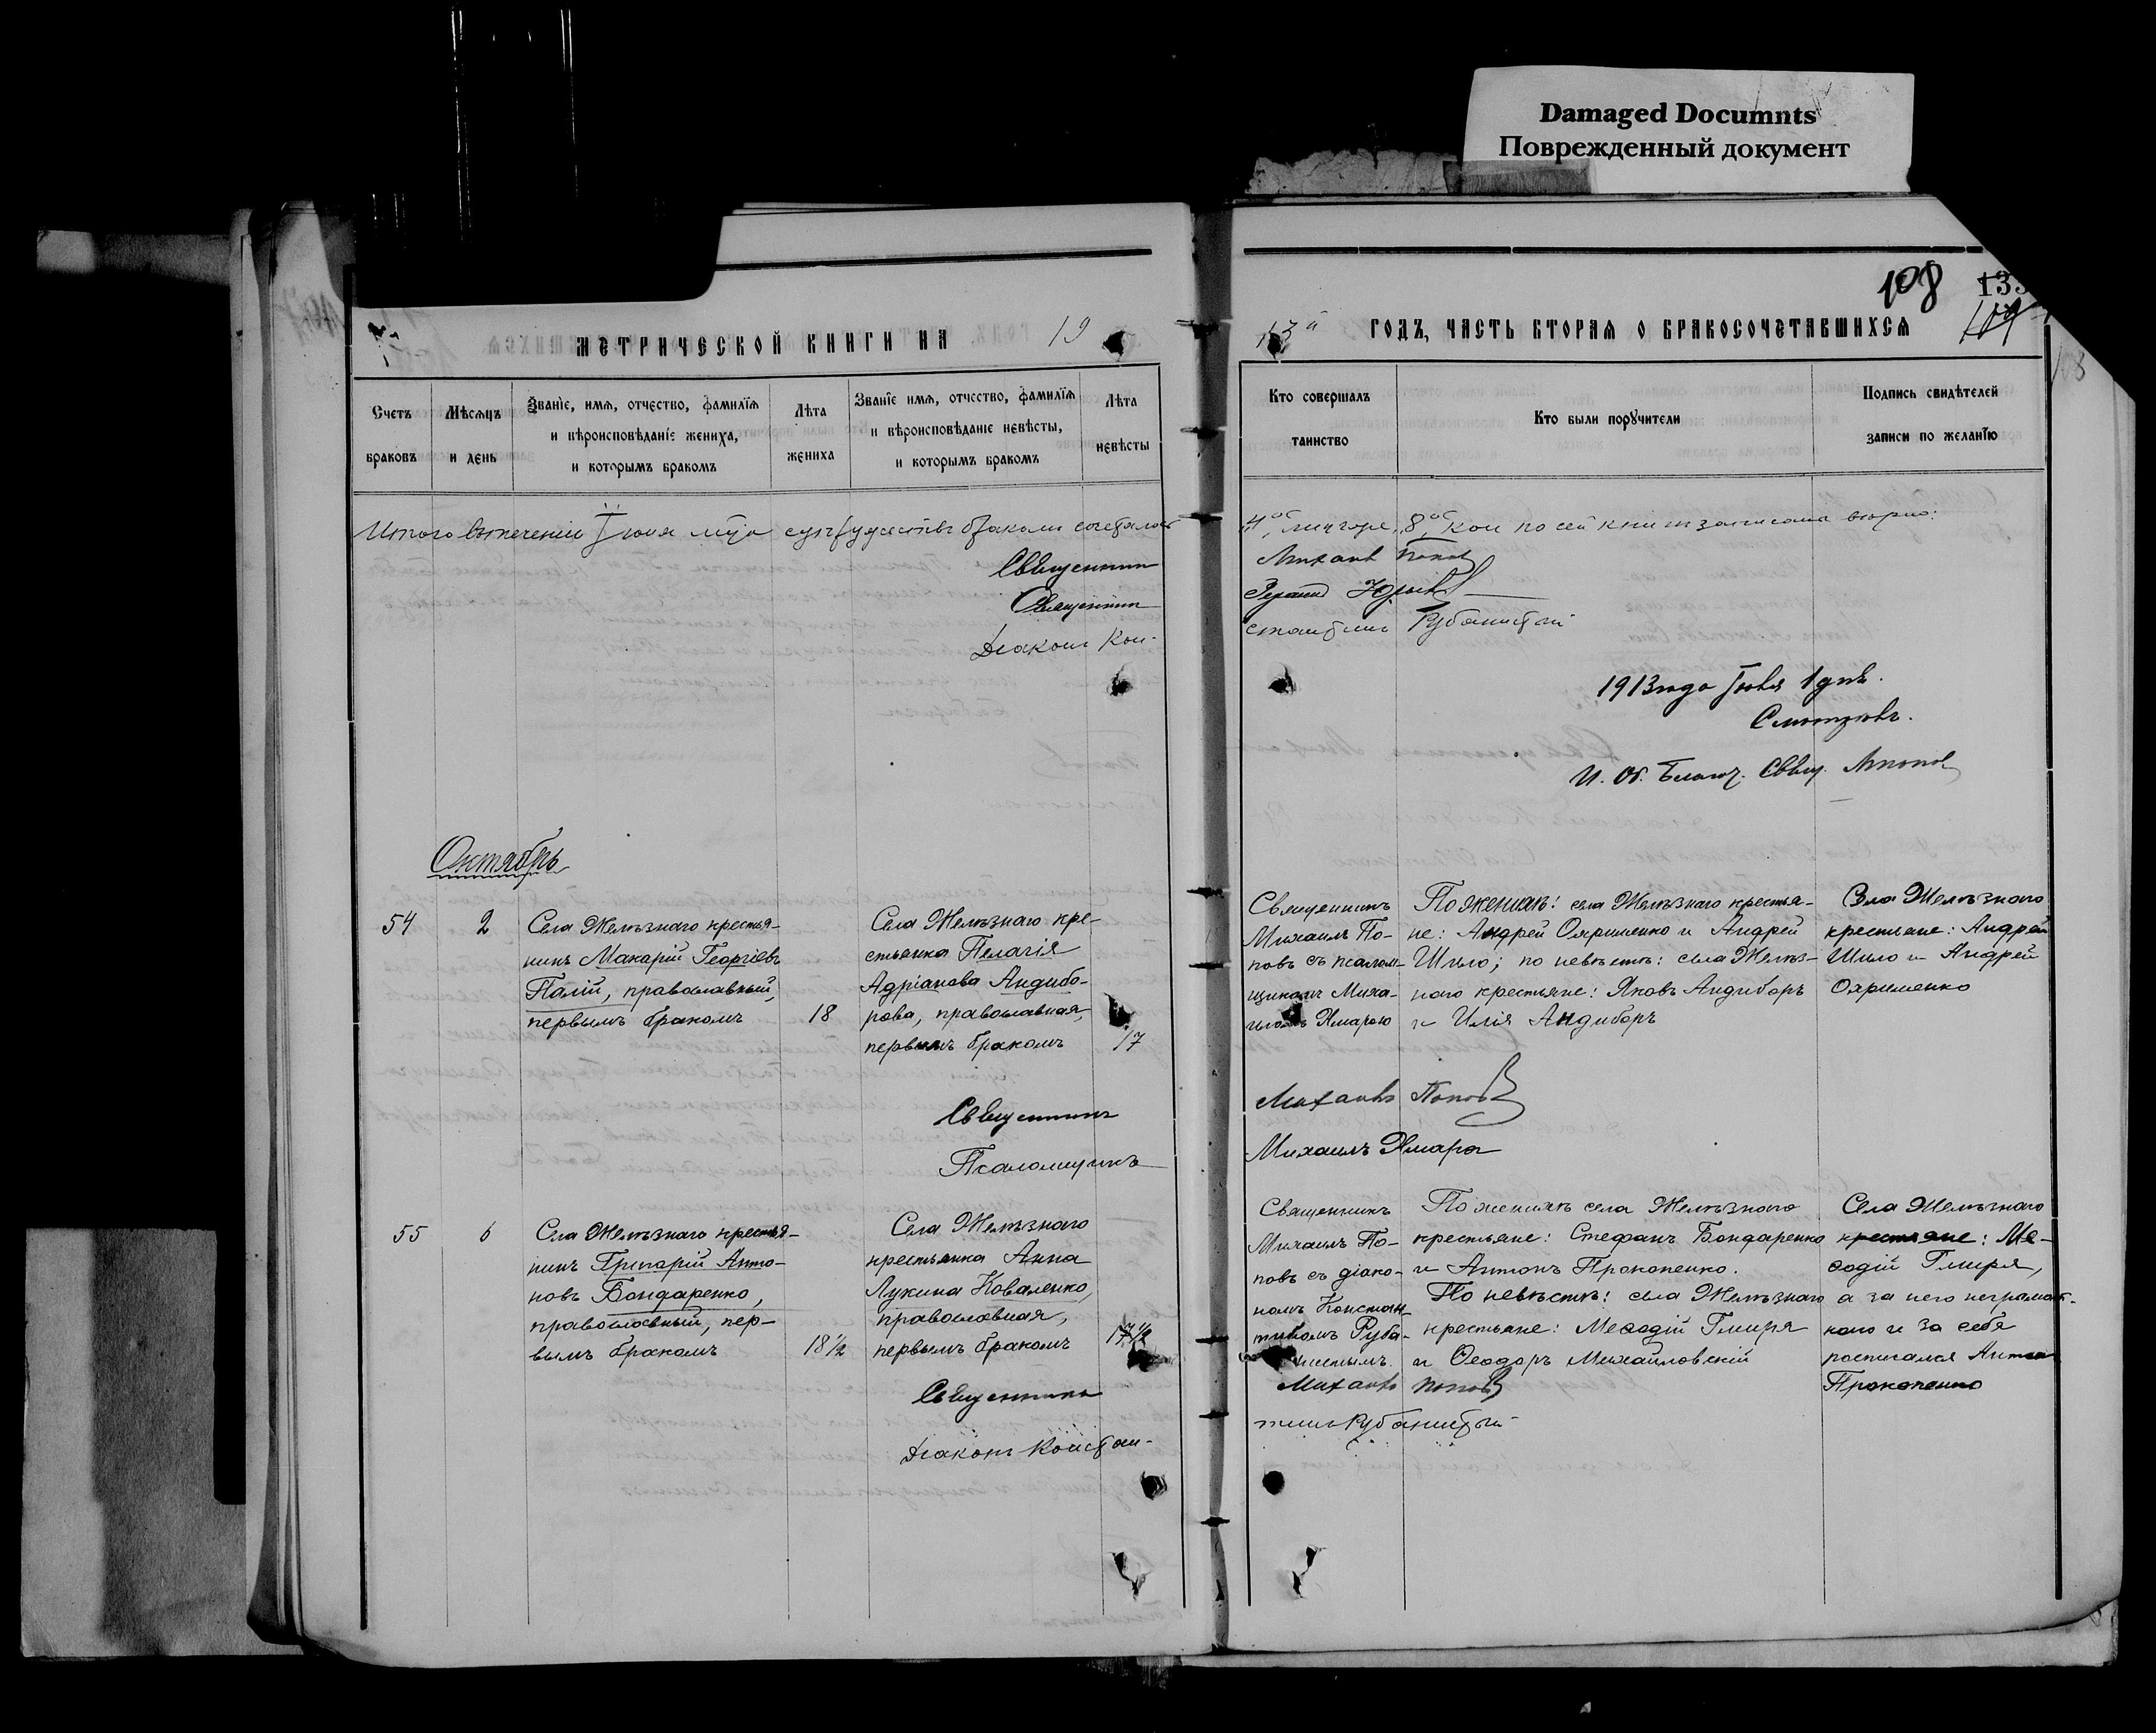 Damaged Documnts
Поврежденный документ
108 133
109
МЕТРИЧЕСКОЙ КНИГИ НА 19
13й ГОДЪ, ЧАСТЬ ВТОРАЯ О БРАКОСОЧЕТАВШИХСЯ
Счетъ браковъ
Мѣсяцъ и день
Званіе, имя, отчество, фамилія
и вѣроисповѣданіе жениха,
и которымъ бракомъ
Лѣта жениха
Званіе имя, отчество, фамилія
и вѣроисповѣданіе невѣсты,
и которымъ бракомъ
Лѣта невѣсты
Кто совершалъ
таинство
Кто были поручители
Подпись свидѣтелей
записи по желанію
Итого
Священникъ
Михаилъ Поповъ
Священникъ
Діаконъ Кон-
стантинъ Рубанистый
1913 года Іюля 1 дня.
Смотрѣлъ.
И. Об. Благоч. Свящ. МПоповъ
Октябрь
54 2
Села Желѣзнаго крестья-
нинъ Макарій Георгіевъ
Палій, православный,
первымъ бракомъ
18
Села Желѣзнаго кре-
стьянка Пелагія
Адріанова Андибо-
рова, православная,
первымъ бракомъ
17
Священникъ
Михаилъ По-
повъ съ псалом-
щикомъ Миха-
иломъ
По женихѣ: села Желѣзнаго крестья-
не: Андрей Охрименко и Андрей
Шило; по невѣстѣ: села Желѣз-
наго крестьяне: Яковъ Андиборъ
и Илія Андиборъ
Села Желѣзнаго
крестьяне: Андрей
Шило и Андрей
Охрименко
Священникъ
Михаилъ Поповъ
Псаломщикъ
Михаилъ
55 6
Села Желѣзнаго крестья-
нинъ Григорій Анто-
новъ Бондаренко,
православный, пер-
вымъ бракомъ
18½
Села Желѣзнаго
крестьянка Анна
Лукина Коваленко,
православная,
первымъ бракомъ
17½
Священникъ
Михаилъ По-
повъ съ діако-
номъ Констан-
тиномъ Руба-
нистымъ.
По женихѣ села Желѣзнаго
крестьяне: Стефанъ Бондаренко
и Антонъ Прокопенко.
По невѣстѣ: села Желѣзнаго
крестьяне: Меѳодій Гмиря
и Ѳеодоръ Михайловскій
Села Желѣзнаго
крестьяне: Ме-
ѳодій Гмиря,
а за него неграмот-
наго и за себя
росписался Антонъ
Прокопенко
Священникъ
Михаилъ Поповъ
Діаконъ Констан-
тинъ Рубанистый